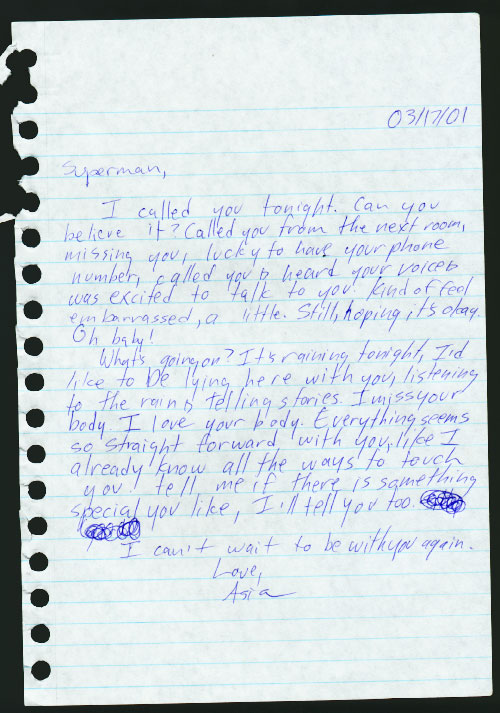 03/17/01
Superman,
I called you tonight. Can you
believe it? Called you from the next room,
missing you, lucky to have your phone
number, called you & heard your voice &
was excited to talk to you! Kind of feel
embarrassed, a little. Still, hoping, it's okay.
Oh baby!
What's going on? It's raining tonight, I'd
like to be lying here with you, listening
to the rain & telling stories. I miss your
body I love your body. Everything seems
so straight forward with you, like I
already know all the ways to touch
you! tell me if there is something
special you like, I'll tell you too.
I can't wait to be with you again.
Love,
Asia